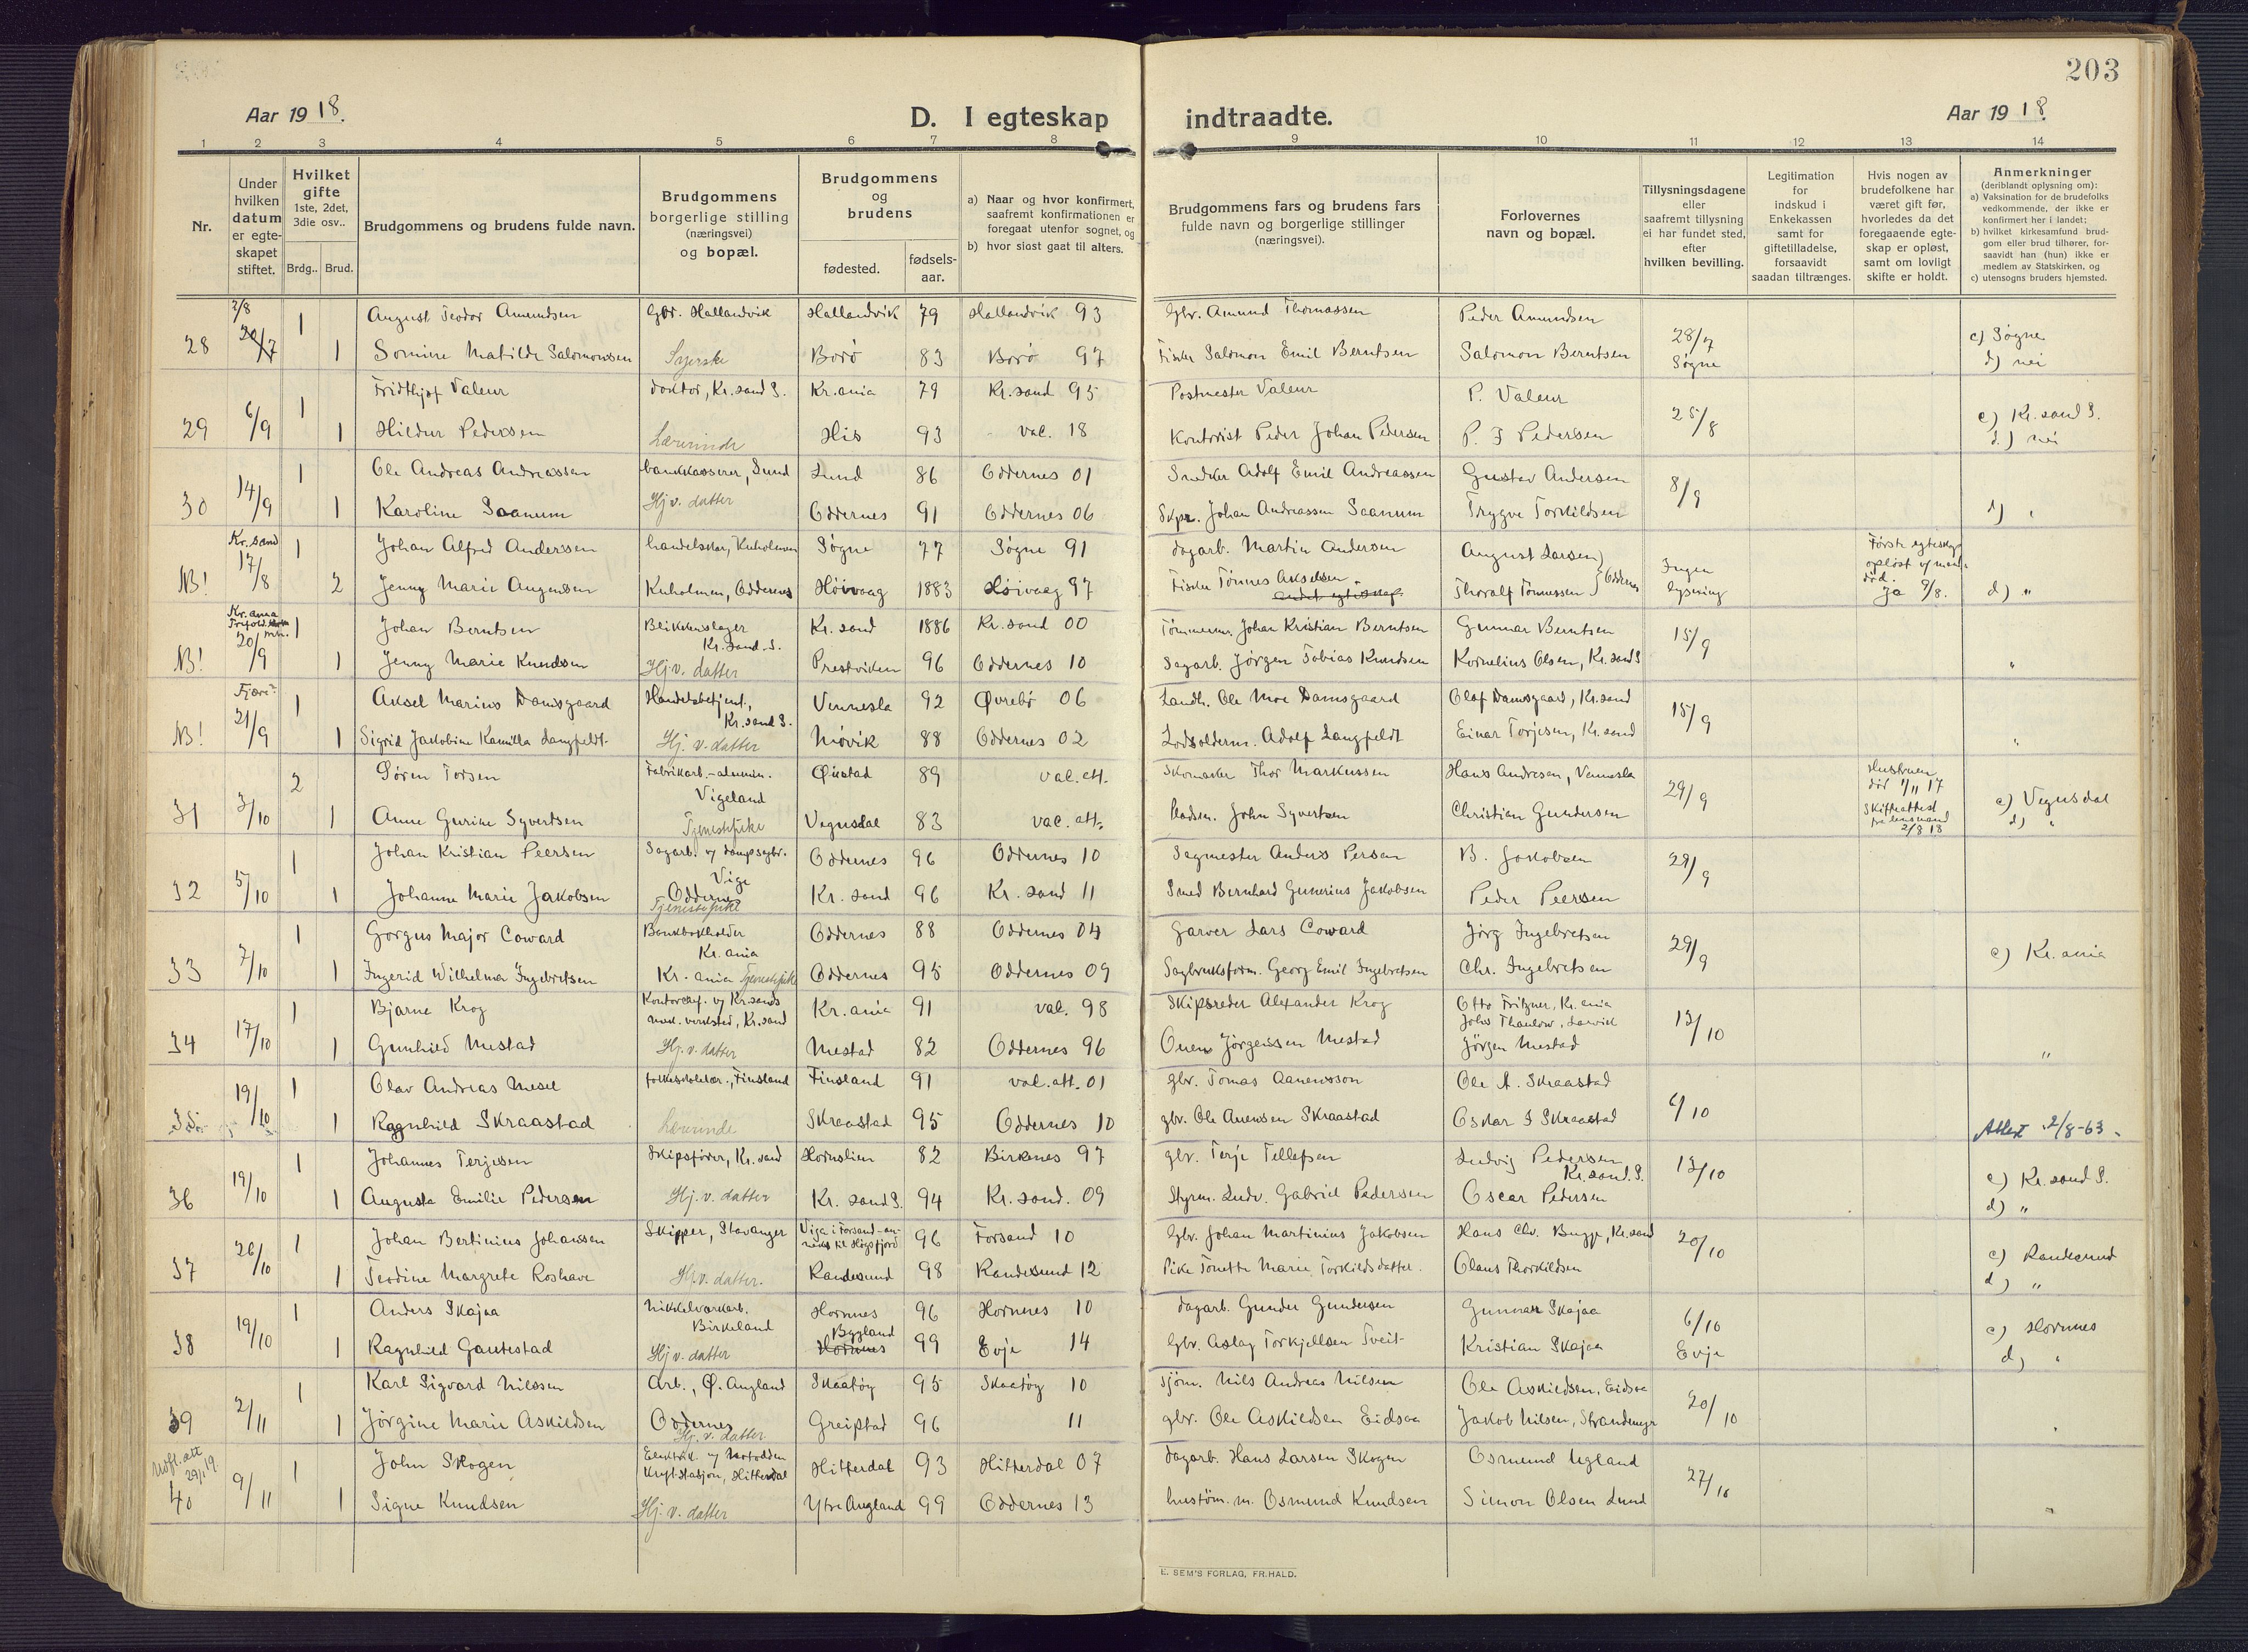 203
Aar 1918.
D. I egteskap indtraadte.
Aar 1918.
1 2 3 4 5 6 7 8 9 10 11 12 13 14
Nr.
Under hvilken datum er egteskapet stiftet.
Hvilket gifte 1ste, 2det, 3die osv..
Brdg.. Brud.
Brudgommens og brudens fulde navn.
Brudgommens borgerlige stilling (næringsvei) og bopæl.
Brudgommens og brudens
fødested. fødsels-aar.
a) Naar og hvor konfirmert, saafremt konfirmationen er foregaat utenfor sognet, og
b) hvor sidst gaat til alters.
Brudgommens fars og brudens fars fulde navn og borgerlige stillinger (næringsvei).
Forlovernes navn og bopæl.
Tillysningsdagene eller saafremt tillysning ei har fundet sted, efter hvilken bevilling.
Legitimation for indskud i Enkekassen samt for giftetilladelse, forsaavidt saadan tiltrænges.
Hvis nogen av brudefolkene har været gift før, hvorledes da det foregaaende egteskap er opløst, samt om lovligt skifte er holdt.
Anmerkninger (deriblandt oplysning om):
a) Vaksination for de brudefolks vedkommende, der ikke er konfirmert her i landet;
b) hvilket kirkesamfund brudgom eller brud tilhører, forsaavidt han (hun) ikke er medlem av Statskirken, og
c) utensogns bruders hjemsted.
28 2/8 1 August Teodor Amundsen Gbr. Hallandvik Hallandvik 79 Hallandvik 93 Gbr. Amund Thomassen Peder Amundsen 28/7 Søgne c) Søgne
1 Somine Matilde Salomonsen Syerske Borø 83 Borø 97 Fisker Salomon Emil Berntsen Salomon Berntsen d) nei
29 6/9 1 Fridthjof Valeur doktor, Kr.sand S. Kr.ania 79 Kr.sand 95 Postmester Valeur P. Valeur 25/8 c) Kr.sand S.
1 Hildur Pedersen Lærerinde His 93 val. 18 Kontorist Peder Johan Pedersen P. J Pedersen d.) nei
30 14/9 1 Ole Andreas Andreassen bankkasserer, Lund Lund 86 Oddernes 01 Snedker Adolf Emil Andreassen Gustav Andersen 8/9
1 Karoline Saanum Hj. v. datter Oddernes 91 Oddernes 06 Skpr. Johan Andreassen Saanum Trygve Torkildsen d) "
NB! Kr.sand 17/8 1 Johan Alfred Andersen handelsmr, Kuholmen Søgne 77 Søgne 91 dagarb. Martin Andersen August Larsen Ingen lysning Første egteskap opløst v/ mands død. Ja 9/8.
2 Jenny Marie Augensen Kuholmen, Oddernes Høivaag 1883 Høivaag 97 Fisker Tønnes Akselsen andet egteskap Thoralf Tønnessen Oddernes d) "
NB! Kr.ania Trefold. 20/9 1 Johan Berntsen Blikkenslager Kr.sand.S. Kr.sand 1886 Kr.sand 00 Tømmerm. Johan Kristian Berntsen Gunnar Berntsen 15/9
1 Jenny Marie Knudsen Hj.v. datter Prestviken 96 Oddernes 10 Sagarb. Jørgen Tobias Knudsen Kornelius Olsen, Kr.sand S "
NB! Fjære 21/9 1 Aksel Marius Damsgaard Handelsbetjent, Kr.sand S. Vennesla 92 Øvrebø 06 Landh. Ole Moe Damsgaard Olaf Damsgaard, Kr.sand 15/9
1 Sigrid Jakobine Kamilla Langfeldt Hj. v. datter Møvik 88 Oddernes 02 Lodsolderm. Adolf Langfeldt Einar Torjesen, Kr.sand "
31 3/10 2 Søren Torsen Fabrikarb.-alumin. Vigeland Øiestad 89 val.att. Skomaker Thor Markussen Hans Andresen, Vennesla 29/9 Hustruen død 1/11 17 Skifteattest fra lensmand 2/8 18 c) Vegusdal
1 Anne Gurine Syvertsen Tjenestepike Vegusdal 83 vac. att. John Syvertsen Christian Gundersen d) "
32 5/10 1 Johan Kristian Peersen Sagarb. v/ dampsagbr. Vige Oddernes 96 Oddernes 10 Sagmester Anders Persen B. Jakobsen 29/9
1 Johanne Marie Jakobsen Oddernes Tjenestepike Kr. sand 96 Kr. sand 11 Smed Bernhard Gunerius Jakobsen Peder Peersen
33 7/10 1 Gorgus Major Coward Bankbokholder Kr. ania Oddernes 88 Oddernes 04 Garver Lars Coward Jørg Ingebretsen 29/9 c) Kr. ania
1 Ingerid Wilhelma Ingebretsen Kr. ania Tjenestepike Oddernes 95 Oddernes 09 Sagbruksform. Georg Emil Ingebretsen Chr. Ingebretsen
34 17/10 1 Bjarne Krog Kontorchef. v/ Kr.sands mek. verksted, Kr.sand Kr.ania 91 val. 98 Skipsreder Alexander Krog Otto Fritzner, Kr.ania John Thaulow, Larvik 13/10
1 Gunhild Mestad Hj. v. datter Mestad 82 Oddernes 96 Ouen Jörgenssen Mestad Jörgen Mestad "
35 19/10 1 Olav Andreas Mesel folkeskolelær., Finsland Finsland 91 val.att. 01 gbr. Tomas Aanensson Ole A. Skraastad 6/10
1 Ragnhild Skraastad Lærerinde Skraastad 95 Oddernes 10 gbr. Ole Anensen Skraastad Oskar I Skraastad Attest 2/8-63.
36 19/10 1 Johannes Terjesen Skipsfører, Kr.sand Hornslien 82 Birkenes 97 gbr. Terje Tellefsen Ludvig Pedersen Kr.sand.S. 13/10 c) Kr.sand S.
1 Augusta Emilie Pedersen Hj. v. datter Kr. sand S. 94 Kr. sand. 09 Styrm. Ludv. Gabriel Pedersen Oscar Pedersen d) "
37 26/10 1 Johan Bertinius Johanssen Skipper, Stavanger Viga i Forsand-anneks til Høgsfjord 96 Forsand 10 Gbr. Johan Martinius Jakobsen Hans Chr. Bugge, Kr.sand 20/10 c) Randesund
1 Teodine Margrete Roshave Hj.v. datter. Randesund 98 Randesund 12 Pike Tonette Marie Torkildsdatter. Olaus Thorkildsen d) "
38 19/10 1 Anders Skajaa Nikkelverkarb. Birkeland Hornnes 96 Hornnes 10 dagarb. Gunder Gundersen Gunnar Skajaa 6/10 Evje c) Hornnes
1 Ragnhild Gautestad Hj v. datter Bygland Hornnes 99 Evje 14 Gbr. Aslag Torkjellsen Tveit Kristian Skajaa d) "
39 2/11 1 Karl Sigvard Nilssen Arb., Ø. Augland Skaatøy 95 Skaatøy 10 Sjøm. Nils Andreas Nilsen Ole Askildsen, Eidsaa 20/10
1 Jørgine Marie Askildsen Oddernes Hj. v. datter Greipstad 96 11 gbr. Ole Askildsen Eidsaa Jakob Nilsen, Strandmyr "
Utdft. att 29/1 19.
40 9/11 1 John Skogen Elektrik. v/ Notodden Kraftstasjon, Hitterdal Hitterdal 93 Hitterdal 07 dagarb. Hans Larsen Skogen Osmund Ugland 27/10
1 Signe Knudsen Hj. v. datter Ytre Augland 99 Oddernes 13 hustøm.m. Osmund Knudsen Simon Olsen Lund "
E. SEM'S FORLAG, FR.HALD.